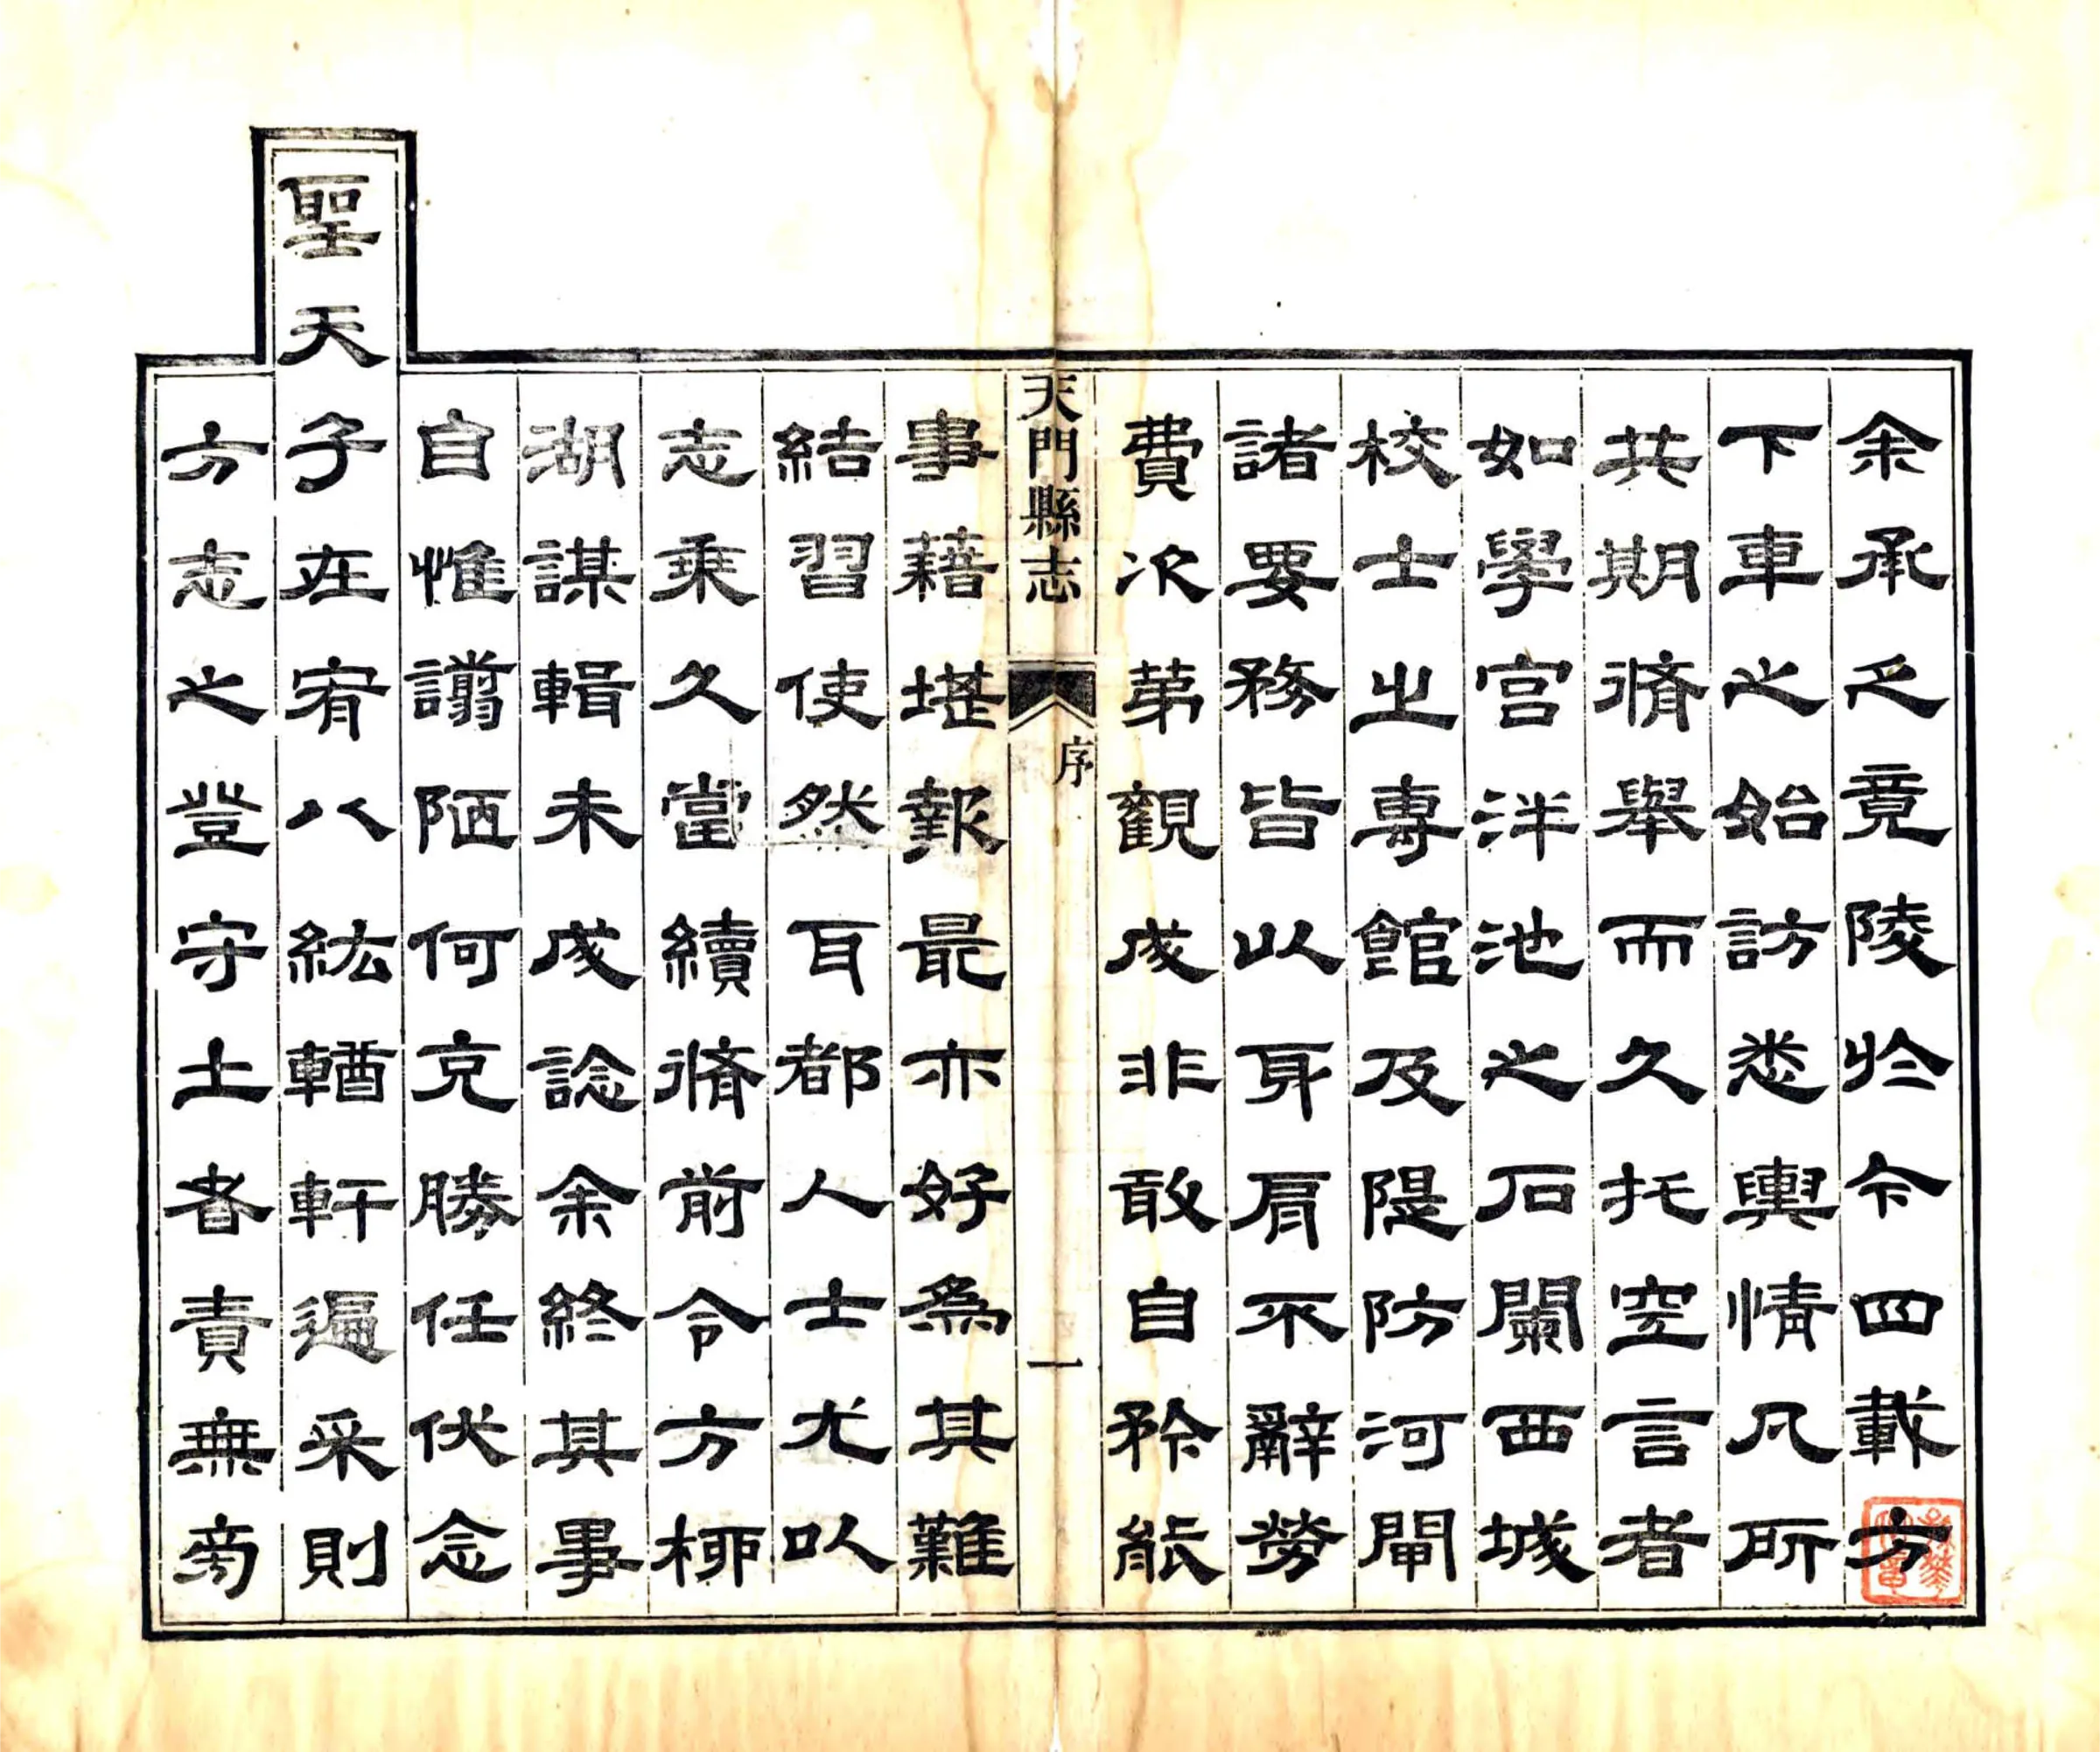 余承乏竟陵於今四載方
下車之始訪悉輿情凡所
共期脩舉而久托空言者
如學宫泮池之石闌西城
校士之專館及隄防河閘
諸要務皆以身肩不辭勞
費次第觀成非敢自矜能
天門縣志
序
一
事藉堪報最亦好為其難
結習使然耳都人士尤以
志乘久當續脩前令方柳
湖謀輯未成諗余終其事
自惟譾陋何克勝任伏念
聖天子在宥八紘輶軒遍采則
方志之豈守土者責無旁